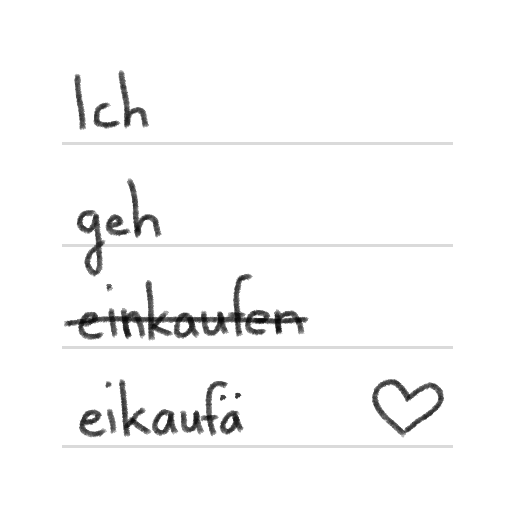 Ich
geh
einkaufen
eikaufä